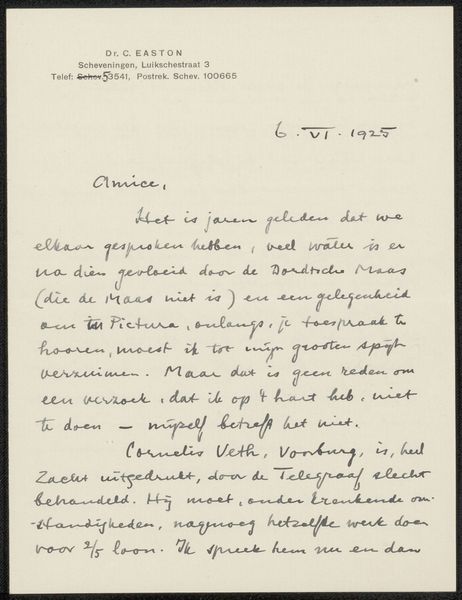 Dr. C. EASTON
Scheveningen, Luikschestraat 3
Telef: Schev. 53541, Postrek. Schev. 100665
6. VI. 1925
Amice,
Het is jaren geleden dat we
elkaar gesproken hebben, veel water is er
na dien gevloeid door de Dordtsche Maas
(die de Maas niet is) en een gelegenheid
om in Pictura, onlangs, je toespraak te
hooren, moest ik tot mijn grooten spijt
verzuimen. Maar dat is geen reden om
een verzoek, dat ik op 't hart heb, niet
te doen — mijzelf betreft het niet.
Cornelis Veth, Voorburg, is, heel
zacht uitgedrukt, door de Telegraaf slecht
behandeld. Hij moet, onder krenkende om-
standigheden, nagenoeg hetzelfde werk doen
voor 2/5 loon. Ik spreek hem nu en dan